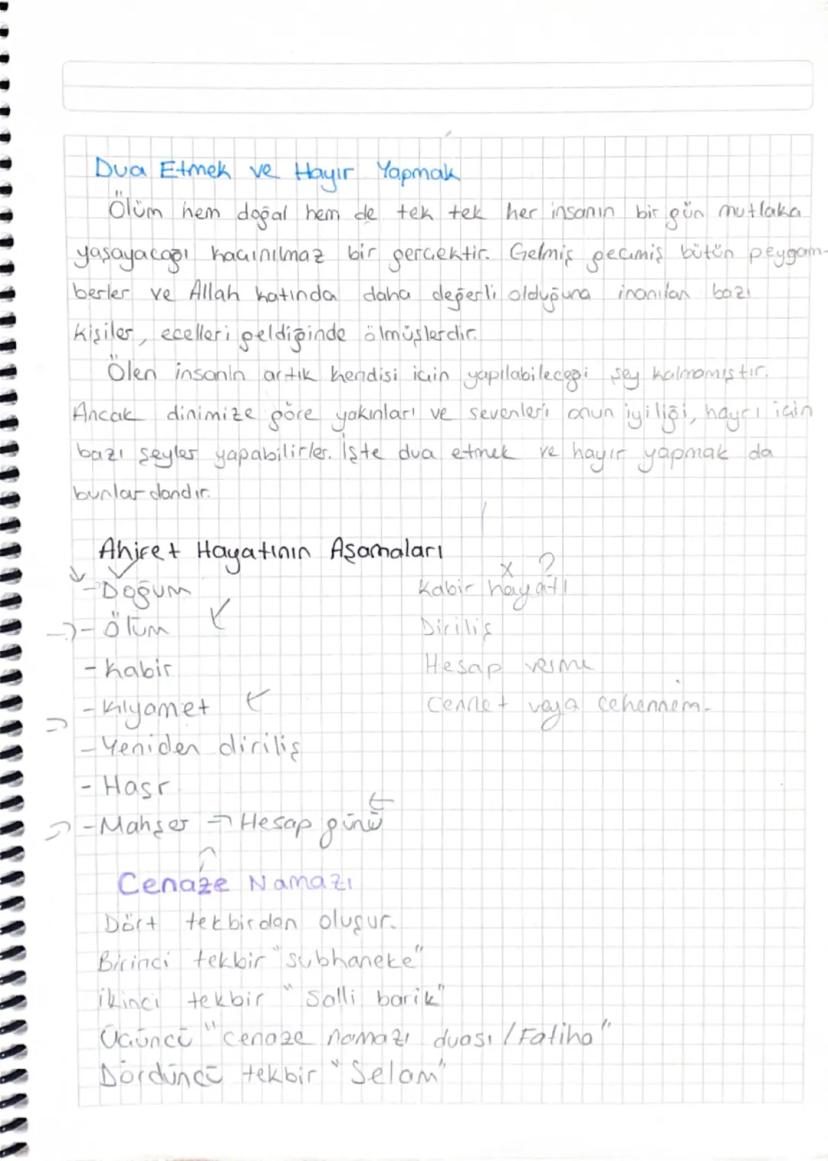 Dua Etmek ve Hayır Yapmak
Ölüm hem doğal hem de tek tek her insanın bir gün mutlaka
yaşayacağı kaçınılmaz bir gerçektir. Gelmiş geçmiş bütün peygam-
berler ve Allah katında daha değerli olduğuna inanılan bazı
kişiler, ecelleri geldiğinde ölmüşlerdir.
Ölen insanın artık kendisi için yapılabileceği şey kalmamıştır.
Ancak dinimize göre yakınları ve sevenleri onun iyiliği, hayrı için
bazı şeyler yapabilirler. İşte dua etmek ve hayır yapmak da
bunlardandır.
Ahiret Hayatının Aşamaları
- Doğum
- Ölüm
- Kabir
- Kıyamet
- Yeniden diriliş
- Haşr
- Mahşer → Hesap günü
x ?
Kabir hayatı
Diriliş
Hesap verme
Cennet veya cehennem.
Cenaze Namazı
Dört tekbirdan oluşur.
Birinci tekbir "subhaneke"
İkinci tekbir "Salli barik"
Üçüncü "cenaze namazı duası / Fatiha"
Dördüncü tekbir "Selam"